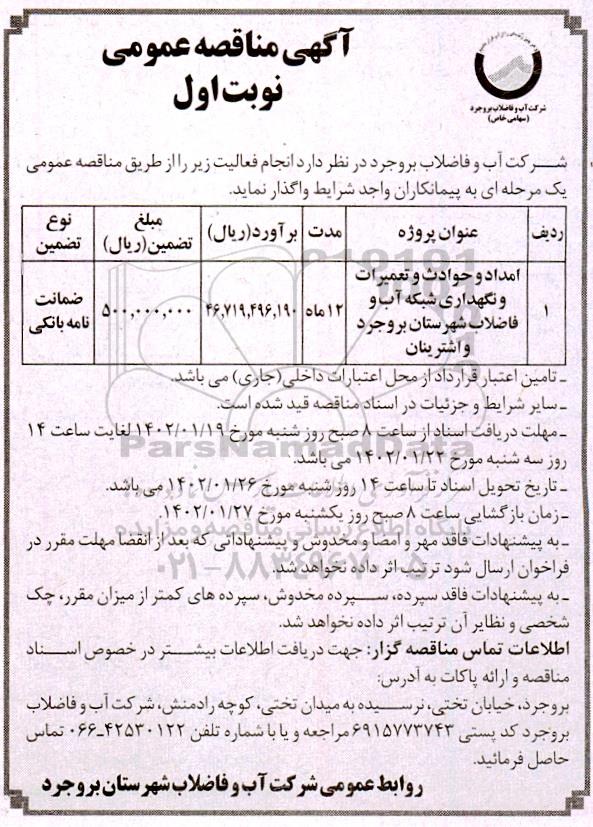 آگهی مناقصه عمومی
نوبت اول
شرکت آب و فاضلاب بروجرد
(سهامی خاص)
شرکت آب و فاضلاب بروجرد در نظر دارد انجام فعالیت زیر را از طریق مناقصه عمومی
یک مرحله ای به پیمانکاران واجد شرایط واگذار نماید.
ردیف عنوان پروژه مدت برآورد(ریال) مبلغ تضمین(ریال) نوع تضمین
۱ امداد و حوادث و تعمیرات و نگهداری شبکه آب و فاضلاب شهرستان بروجرد و اشترینان ۱۲ماه ۴۶,۷۱۹,۴۹۶,۱۹۰ ۵۰۰,۰۰۰,۰۰۰ ضمانت نامه بانکی
ـ تامین اعتبار قرارداد از محل اعتبارات داخلی(جاری) می باشد.
ـ سایر شرایط و جزئیات در اسناد مناقصه قید شده است.
ـ مهلت دریافت اسناد از ساعت ۸ صبح روز شنبه مورخ ۱۴۰۲/۰۱/۱۹ لغایت ساعت ۱۴
روز سه شنبه مورخ ۱۴۰۲/۰۱/۲۲ می باشد.
ـ تاریخ تحویل اسناد تا ساعت ۱۴ روز شنبه مورخ ۱۴۰۲/۰۱/۲۶ می باشد.
ـ زمان بازگشایی ساعت ۸ صبح روز یکشنبه مورخ ۱۴۰۲/۰۱/۲۷.
ـ به پیشنهادات فاقد مهر و امضا و مخدوش و پیشنهاداتی که بعد از انقضا مهلت مقرر در
فراخوان ارسال شود ترتیب اثر داده نخواهد شد.
ـ به پیشنهادات فاقد سپرده، سپرده مخدوش، سپرده های کمتر از میزان مقرر، چک
شخصی و نظایر آن ترتیب اثر داده نخواهد شد.
اطلاعات تماس مناقصه گزار: جهت دریافت اطلاعات بیشتر در خصوص اسناد
مناقصه و ارائه پاکات به آدرس:
بروجرد، خیابان تختی، نرسیده به میدان تختی، کوچه رادمنش، شرکت آب و فاضلاب
بروجرد کد پستی ۶۹۱۵۷۷۳۷۴۳ مراجعه و یا با شماره تلفن ۴۲۵۳۰۱۲۲-۰۶۶ تماس
حاصل فرمائید.
روابط عمومی شرکت آب و فاضلاب شهرستان بروجرد
ParsNamadData
پایگاه اطلاع رسانی مناقصه و مزایده